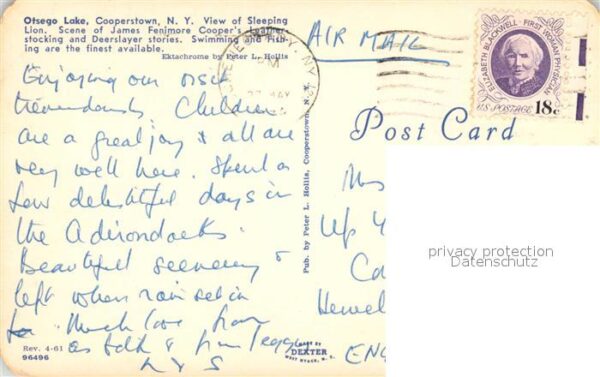 Otsego Lake, Cooperstown, N. Y. View of Sleeping
Lion. Scene of James Fenimore Cooper's Leather-
stocking and Deerslayer stories. Swimming and Fish-
ing are the finest available.
Ektachrome by Peter L. Hollis
AIR MAIL
ELIZABETH BLACKWELL · FIRST WOMAN PHYSICIAN
U.S. POSTAGE 18c
Post Card
Enjoying our visit
tremendously. Children
are a great joy & all are
very well here. Spent a
few delightful days in
the Adirondacks.
Beautiful scenery &
left when rain set in
Much love from
as both & from Peggy
Pub. by Peter L. Hollis, Cooperstown, N. Y.
Up
Hemel
ENG
privacy protection
Datenschutz
Rev. 4-61
96496
MADE BY
DEXTER
WEST NYACK, N. Y.